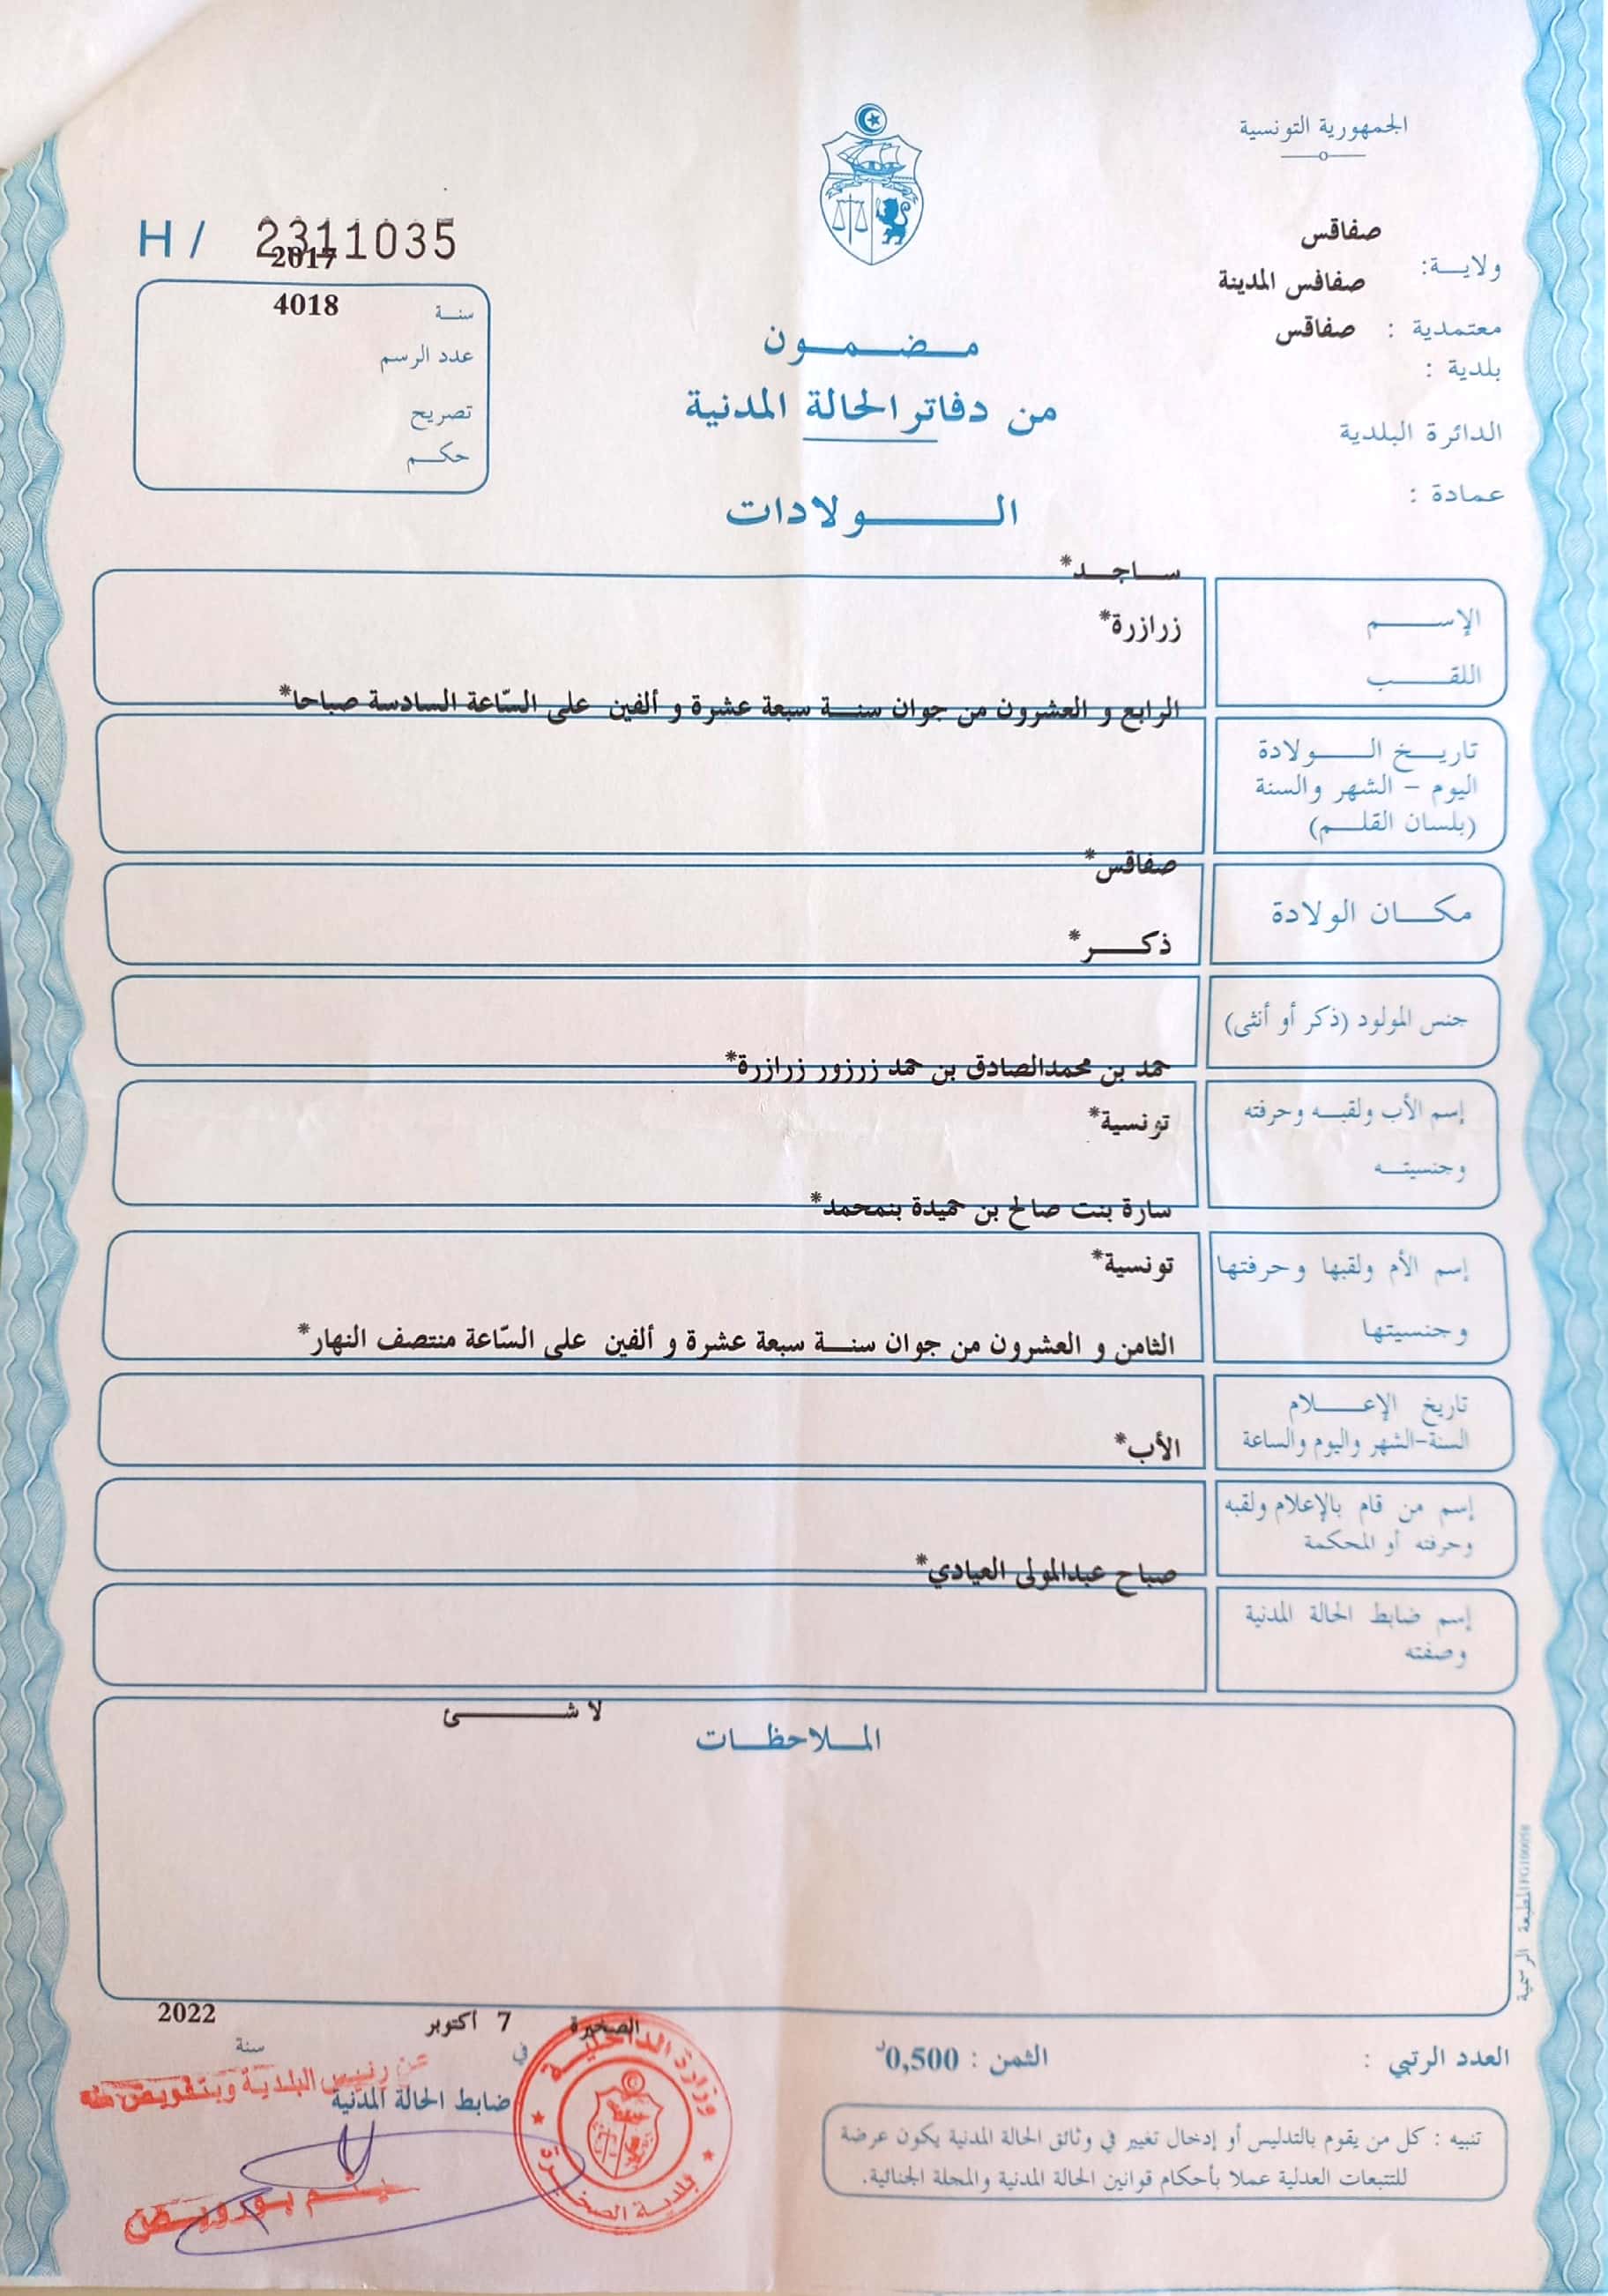 الجمهورية التونسية
صفاقس
ولاية:
صفاقس المدينة
معتمدية :
صفاقس
بلدية :
الدائرة البلدية
عمادة :
H / 2311035
2017
سنة
4018
عدد الرسم
تصريح
حكم
مضمون
من دفاتر الحالة المدنية
الولادات
ساجد*
الإسم
زرازرة*
اللقب
الرابع و العشرون من جوان سنة سبعة عشرة و ألفين على السّاعة السادسة صباحا*
تاريخ الولادة
اليوم - الشهر والسنة
(بلسان القلم)
صفاقس*
مكان الولادة
ذكر*
جنس المولود (ذكر أو أنثى)
حمد بن محمدالصادق بن حمد زرزور زرازرة*
إسم الأب ولقبه وحرفته
تونسية*
وجنسيته
سارة بنت صالح بن حميدة بنمحمد*
إسم الأم ولقبها وحرفتها
تونسية*
وجنسيتها
الثامن و العشرون من جوان سنة سبعة عشرة و ألفين على السّاعة منتصف النهار*
تاريخ الإعلام
السنة-الشهر واليوم والساعة
الأب*
إسم من قام بالإعلام ولقبه
وحرفته أو المحكمة
صباح عبدالمولى العيادي*
إسم ضابط الحالة المدنية
وصفته
لا شئ
الملاحظات
المطبعة الرسمية
الصخيرة
في
7 أكتوبر
سنة
2022
عن رئيس البلدية وبتفويض منه
ضابط الحالة المدنية
وزارة الداخلية
بلدية الصخيرة
العدد الرتبي :
الثمن : 0,500د
تنبيه : كل من يقوم بالتدليس أو إدخال تغيير في وثائق الحالة المدنية يكون عرضة
للتتبعات العدلية عملا بأحكام قوانين الحالة المدنية والمجلة الجنائية.